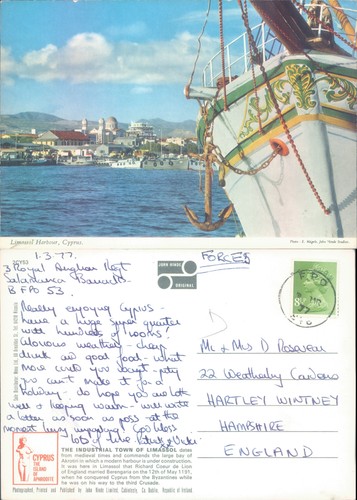 Limassol Harbour, Cyprus.
Photo : E. Nägele, John Hinde Studios.
2CY53
1-3-77.
3 Royal Anglian Regt
Salamanca Barracks
B F P O 53.
Really enjoying Cyprus -
have a huge super quarter
with hundreds of rooms!
Glorious weather - cheap
drink and good food - what
more could you want - pity
you can't make it for a
holiday - do hope you are both
well & keeping warm - will write
a letter as soon as poss - at the
moment busy enjoying God bless
lots of love
JOHN HINDE
ORIGINAL
FORCES
8½P
FPO
Mr & Mrs D
22 Weatherby Gardens
HARTLEY WINTNEY
HAMPSHIRE
ENGLAND
CYPRUS
THE
ISLAND
OF
APHRODITE
THE INDUSTRIAL TOWN OF LIMASSOL dates
from medieval times and commands the large bay of
Akrotiri in which a modern harbour is under construction.
It was here in Limassol that Richard Coeur de Lion
of England married Berengaria on the 12th of May 1191,
when he conquered Cyprus from the Byzantines while
he was on his way to the third Crusade.
Photographed, Printed and Published by John Hinde Limited, Cabinteely, Co. Dublin, Republic of Ireland